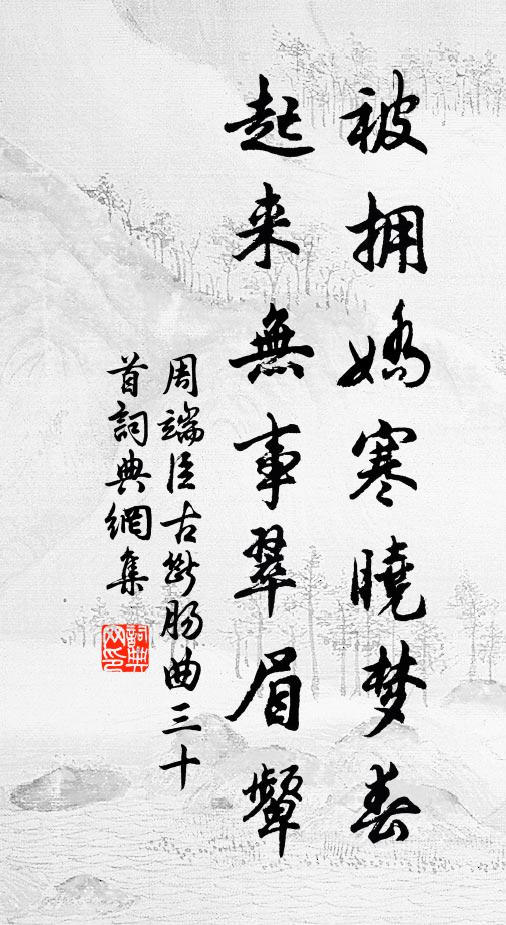 被拥娇寒曉梦春
起来無事翠眉顰
周端臣古断肠曲三十
首詞典網集
詞典网印